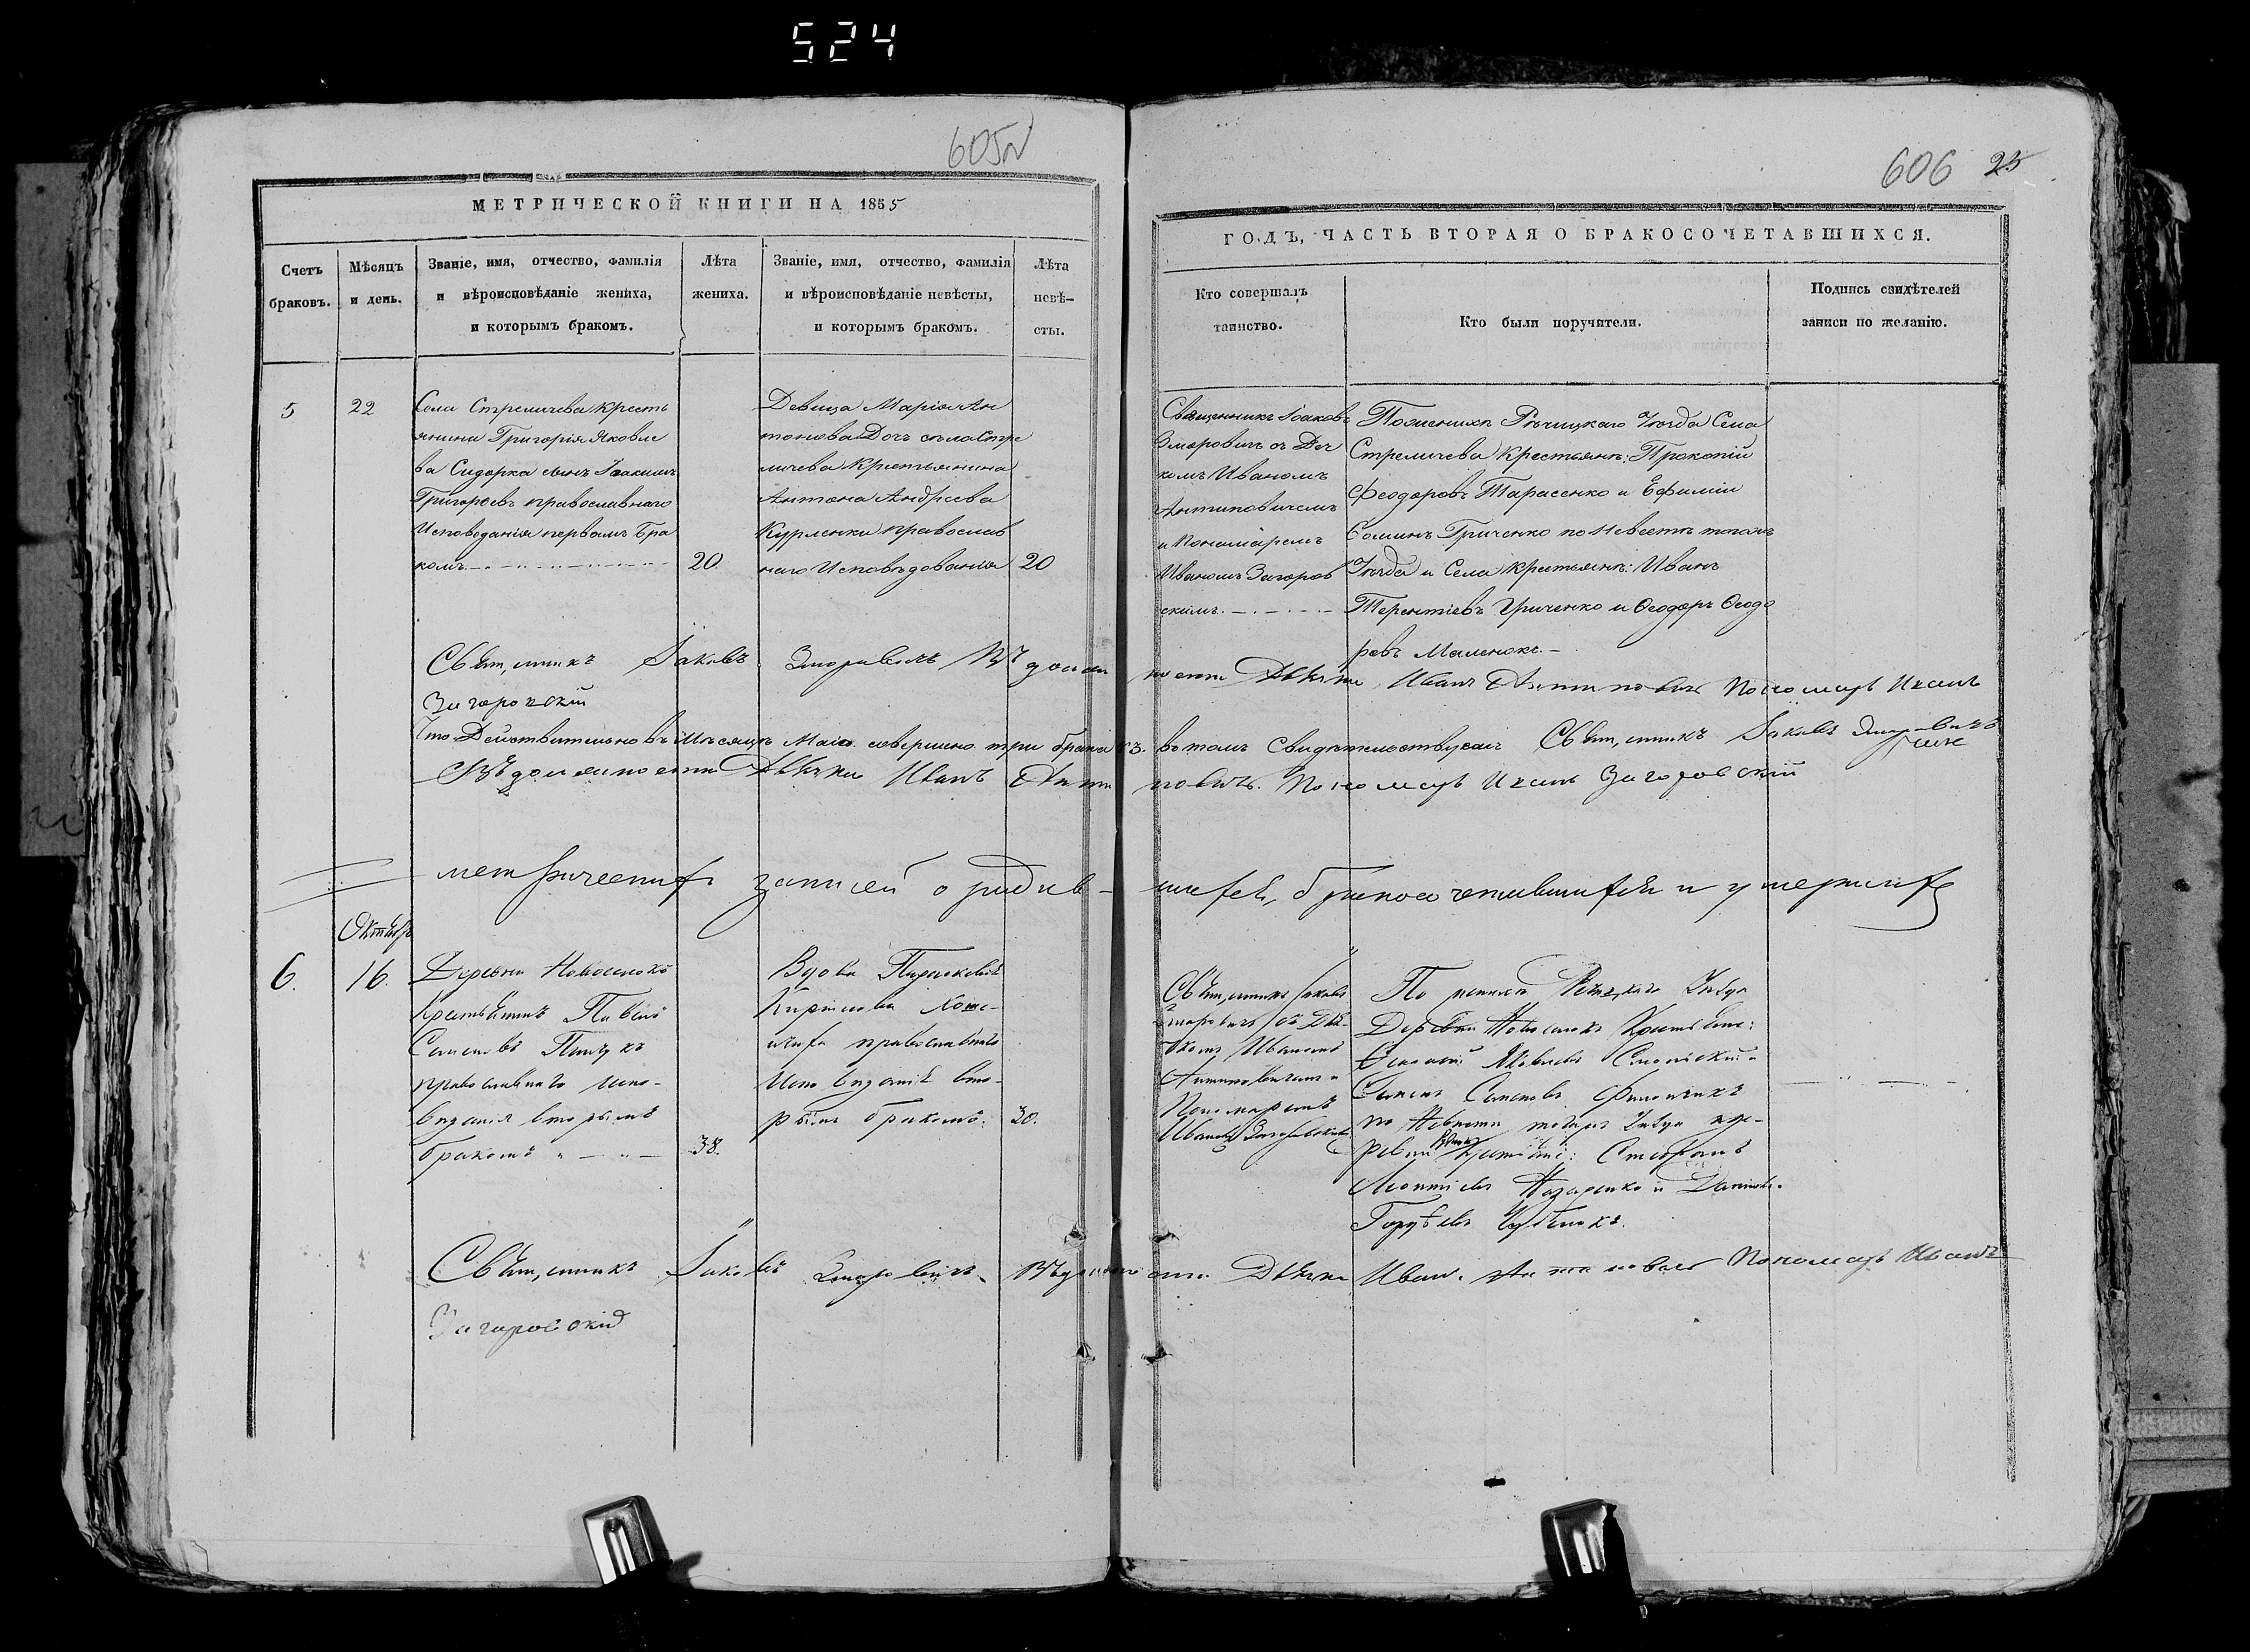 524
605
606 25
МЕТРИЧЕСКОЙ КНИГИ НА 1855
Счетъ
браковъ.
Мѣсяцъ
и день.
Званіе, имя, отчество, фамилія
и вѣроисповѣданіе жениха,
и которымъ бракомъ.
Лѣта
жениха.
Званіе, имя, отчество, фамилія
и вѣроисповѣданіе невѣсты,
и которымъ бракомъ.
Лѣта
невѣ-
сты.
ГОДЪ, ЧАСТЬ ВТОРАЯ О БРАКОСОЧЕТАВШИХСЯ.
Кто совершалъ
таинство.
Кто были поручители.
Подпись свидѣтелей
записи по желанію.
5
22
Села Стреличева Кресть
янина Григорія Яковле
ва Сидорка сынъ Іоакимъ
Григорьевъ православнаго
Исповеданія первымъ Бра
комъ.
20
Девица Марія Ан
тонова Дочь села Стре
личева Крестьянина
Антона Андреева
Курленки православ
наго Исповѣдованія
20
Священникъ Іоаковъ
Зморовичъ съ Дьч
комъ Иваномъ
Антиповичемъ
и Пономаремъ
Иваномъ Загоров
скимъ.
По женихѣ Рѣчицкаго Уѣзда Села
Стреличева Крестьяне: Прокопій
Феодоровъ Тарасенко и Ефимій
Гриченко по Невестѣ тогожъ
Уѣзда и Села Крестьяне: Иванъ
Терентіевъ Гриченко и Феодоръ Феодо
ровъ Маленокъ.
Священникъ Іаковъ Зморовичъ Въ должности Дьячка Иванъ Антиповичъ Пономарь Иванъ
Загоровскій
Что Действительно въ Мѣсяцѣ Маіѣ совершено три брака 3. въ томъ Свидѣтельствуемъ Священникъ Іаковъ Зморовичъ
Въ должности Дьячка Иванъ Антиповичъ. Пономарь Иванъ Загоровскій
метрическихъ записей о родив- шихся, бракосочетавшихся и умершихъ
Октябрь
6.
16.
Деревни Новоселокъ
Крестьянинъ Павелъ
Семеновъ Пинчукъ
православнаго испо-
веданія вторымъ
бракомъ
38.
Вдова Параскевія
Кирилова
православнаго
Исповеданія вто-
рымъ бракомъ.
30.
Священникъ Іаковъ
Зморовичъ съ Дья-
комъ Иваномъ
Антиповичемъ и
Пономаремъ
Иваномъ Загоровскимъ
По женихѣ Рѣчицкаго Уѣзда
Деревни Новоселокъ Крестьяне:
Яковлевъ
Семенъ Семеновъ
по Невестѣ тогожъ Уѣзда и де-
ревни Крестьяне: Стефанъ
Леонтіевъ Назаренко и
Священникъ Іаковъ Зморовичъ. Въ должности Дьячка Иванъ Антиповичъ Пономарь Иванъ
Загоровскій